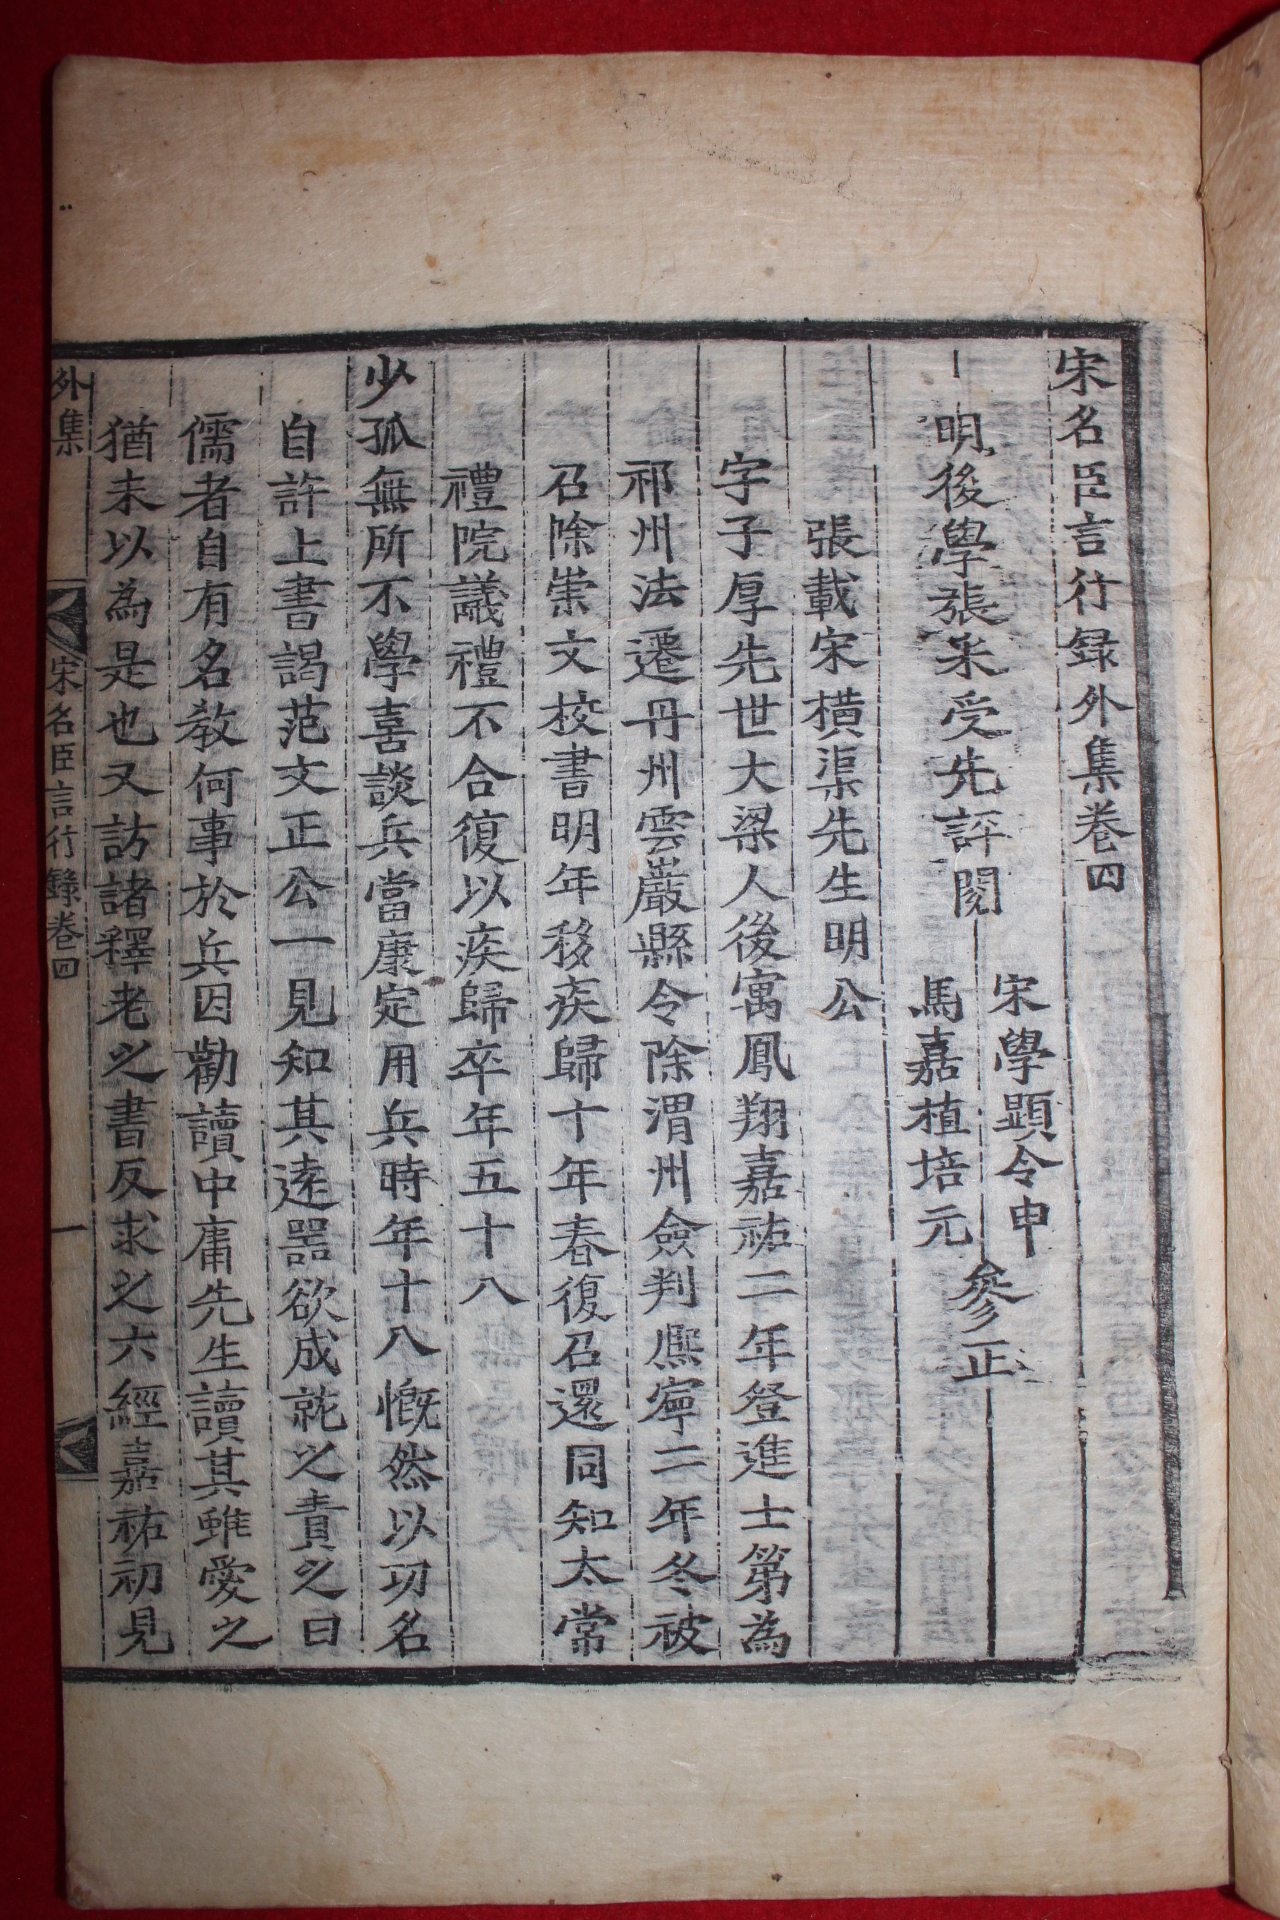 宋名臣言行録外集卷四
明後學張采受先評閱
宋學顯令申
馬嘉植培元
參正
張載宋橫渠先生明公
字子厚先世大梁人後寓鳳翔嘉祐二年登進士第為
祁州法遷丹州雲巖縣令除渭州僉判熈寧二年冬被
召除崇文校書明年移疾歸十年春復召還同知太常
禮院議禮不合復以疾歸卒年五十八
少孤無所不學喜談兵當康定用兵時年十八慨然以功名
自許上書謁范文正公一見知其逺器欲成就之責之曰
儒者自有名教何事於兵因勸讀中庸先生讀其雖愛之
猶未以為是也又訪諸釋老之書反求之六經嘉祐初見
外集
宋名臣言行錄卷四
一